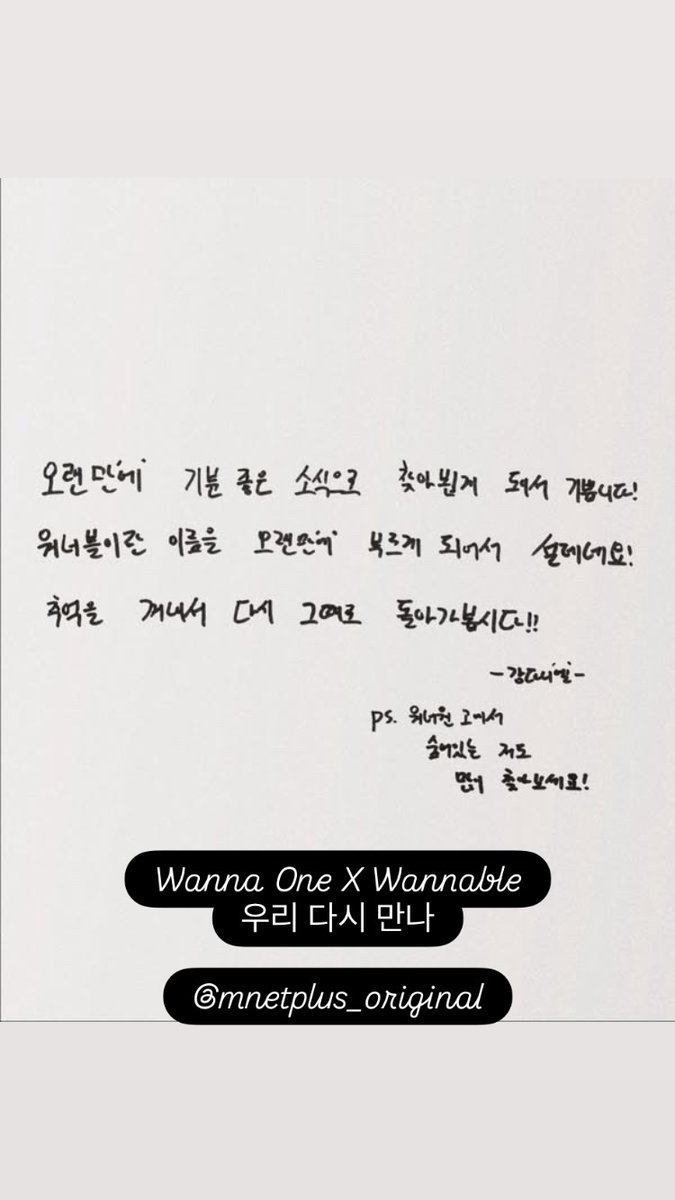 오랜만에 기분 좋은 소식으로 찾아뵙게 되서 기쁩니다!
워너블이란 이름을 오랜만에 부르게 되어서 설레네요!
추억을 꺼내서 다시 그때로 돌아가봅시다!!
-강다니엘-
ps. 워너원 고에서
숨어있는 저도
많이 찾아보세요!
Wanna One X Wannable
우리 다시 만나
@mnetplus_original